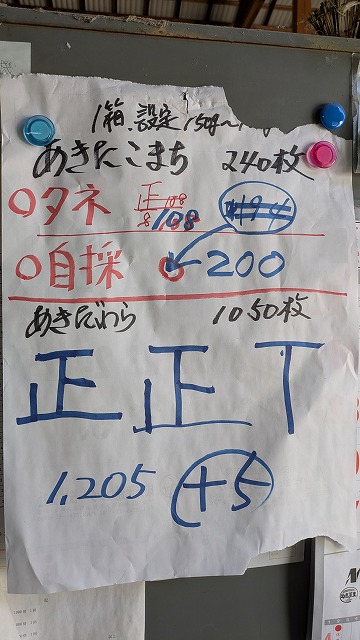 1箱設定 150g~
あきたこまち 240枚
○タネ 正 108
○自採 200
あきだわら 1050枚
正 正 丅
1,205 +5